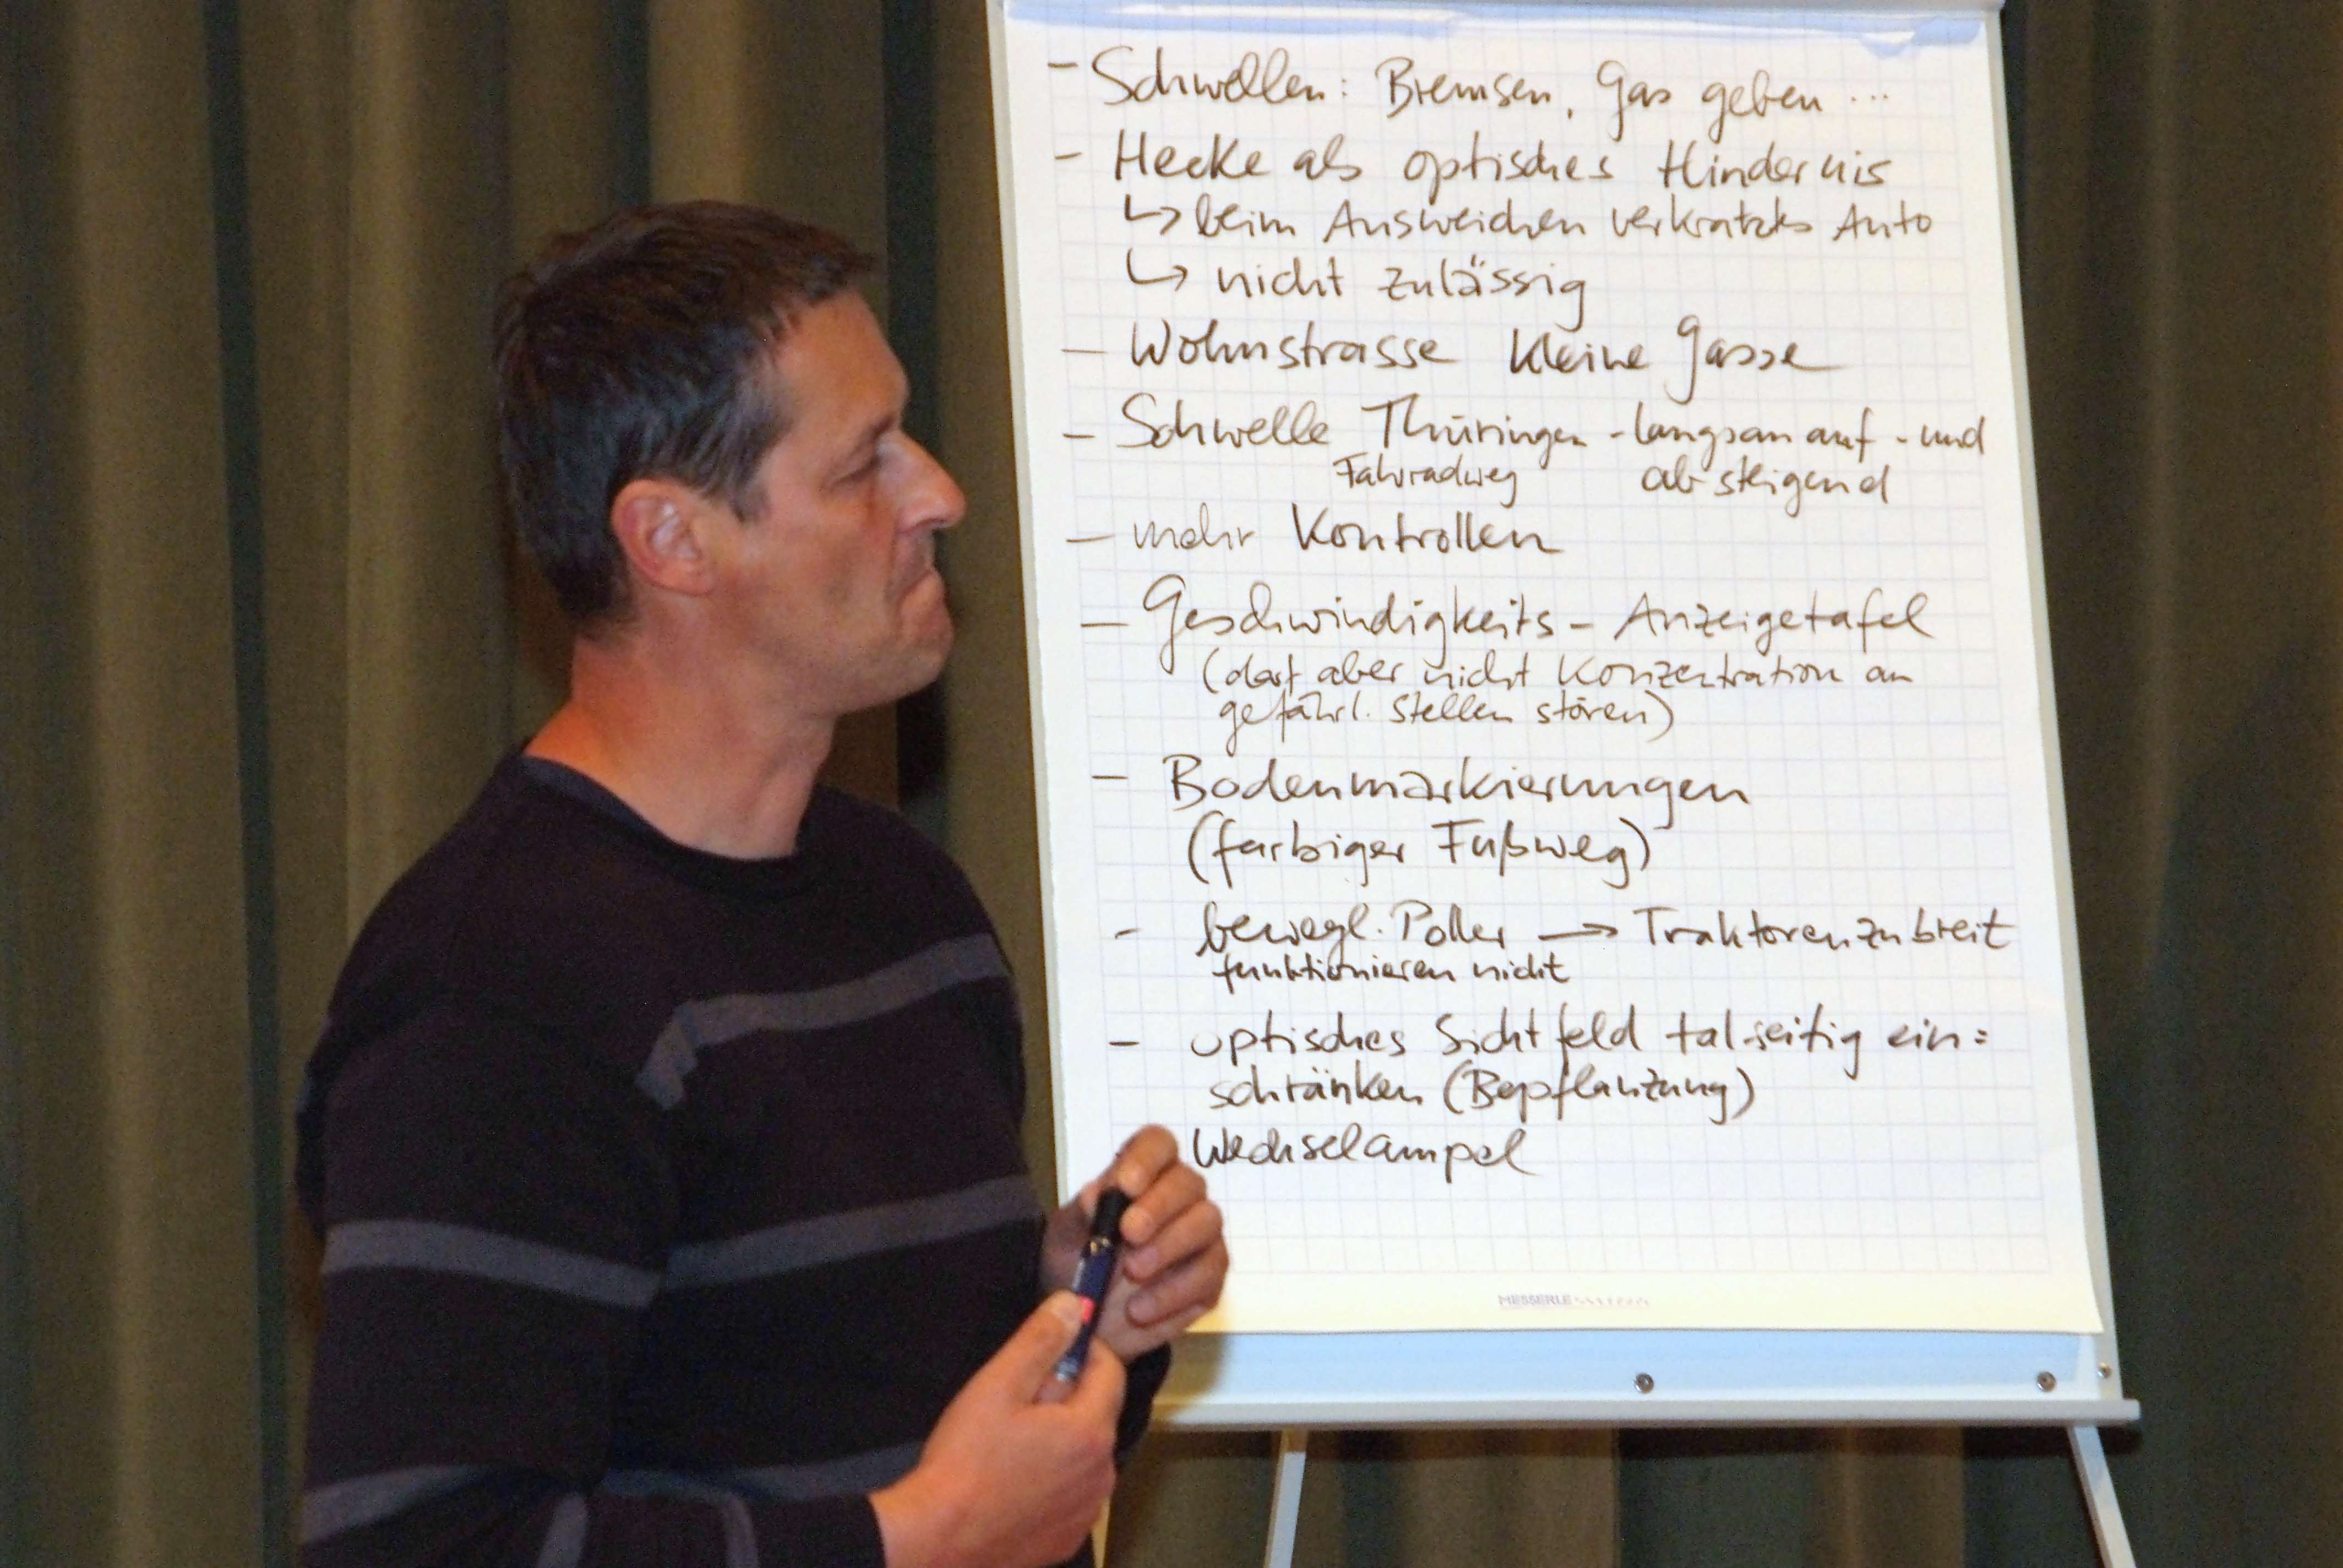 - Schwellen: Bremsen, Gas geben ...
- Hecke als optisches Hindernis
↳ beim Ausweichen verkratztes Auto
↳ nicht zulässig
- Wohnstrasse Kleine Gasse
- Schwelle Thüringen - langsam auf - und
Fahrradweg absteigend
- mehr Kontrollen
- Geschwindigkeits - Anzeigetafel
(darf aber nicht Konzentration an
gefährl. Stellen stören)
- Bodenmarkierungen
(farbiger Fußweg)
- bewegl. Poller → Traktoren zu breit
funktionieren nicht
- optisches Sichtfeld talseitig ein=
schränken (Bepflanzung)
Wechselampel
MESSERLE